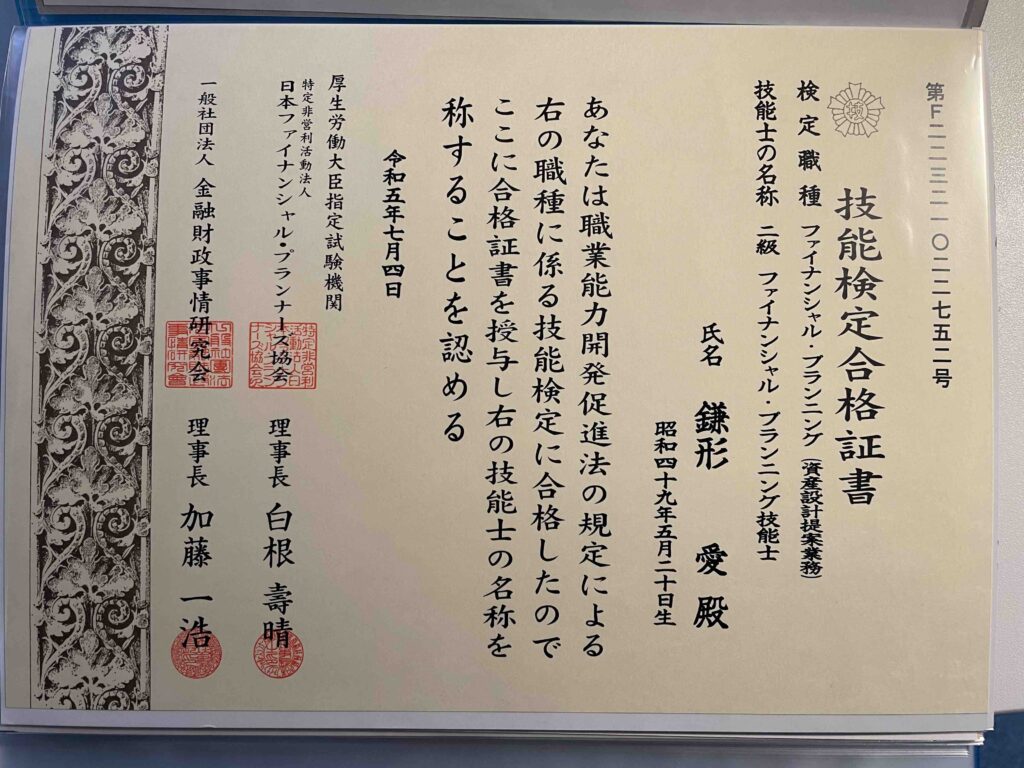 第F二二三二一〇二二七五二号
技能検定合格証書
検定職種 ファイナンシャル・プランニング(資産設計提案業務)
技能士の名称 二級 ファイナンシャル・プランニング技能士
氏名 鎌形 愛 殿
昭和四十九年五月二十日生
あなたは職業能力開発促進法の規定による
右の職種に係る技能検定に合格したので
ここに合格証書を授与し右の技能士の名称を
称することを認める
令和五年七月四日
厚生労働大臣指定試験機関
特定非営利活動法人
日本ファイナンシャル・プランナーズ協会 理事長 白根 壽晴
一般社団法人 金融財政事情研究会 理事長 加藤 一浩